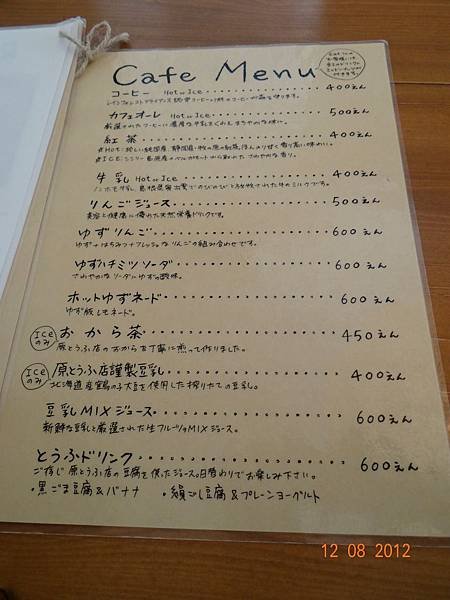 Cafe Menu
コーヒー Hot or Ice 400えん
カフェオーレ Hot or Ice 500えん
紅茶 400えん
牛乳 Hot or Ice 400えん
りんごジュース 500えん
美容と健康に優れた天然栄養ドリンクです。
ゆずりんご 600えん
ゆず+はちみつ+フレッシュなりんごの組み合わせです。
ゆずハチミツソーダ 600えん
さわやかなソーダにゆずの酸味。
ホットゆずネード 600えん
ゆず版レモネード。
Iceのみ おから茶 450えん
原とうふ店のおからを丁寧に煎って作りました。
Iceのみ 原とうふ店謹製豆乳 400えん
北海道産鶴の子大豆を使用した搾りたての豆乳。
豆乳MIXジュース 600えん
新鮮な豆乳と厳選された生フルーツのMIXジュース。
とうふドリンク 600えん
ご存じ原とうふ店の豆腐を使ったジュース。日替わりでお楽しみ下さい。
・黒ごま豆腐&バナナ ・絹ごし豆腐&プレーンヨーグルト
12 08 2012